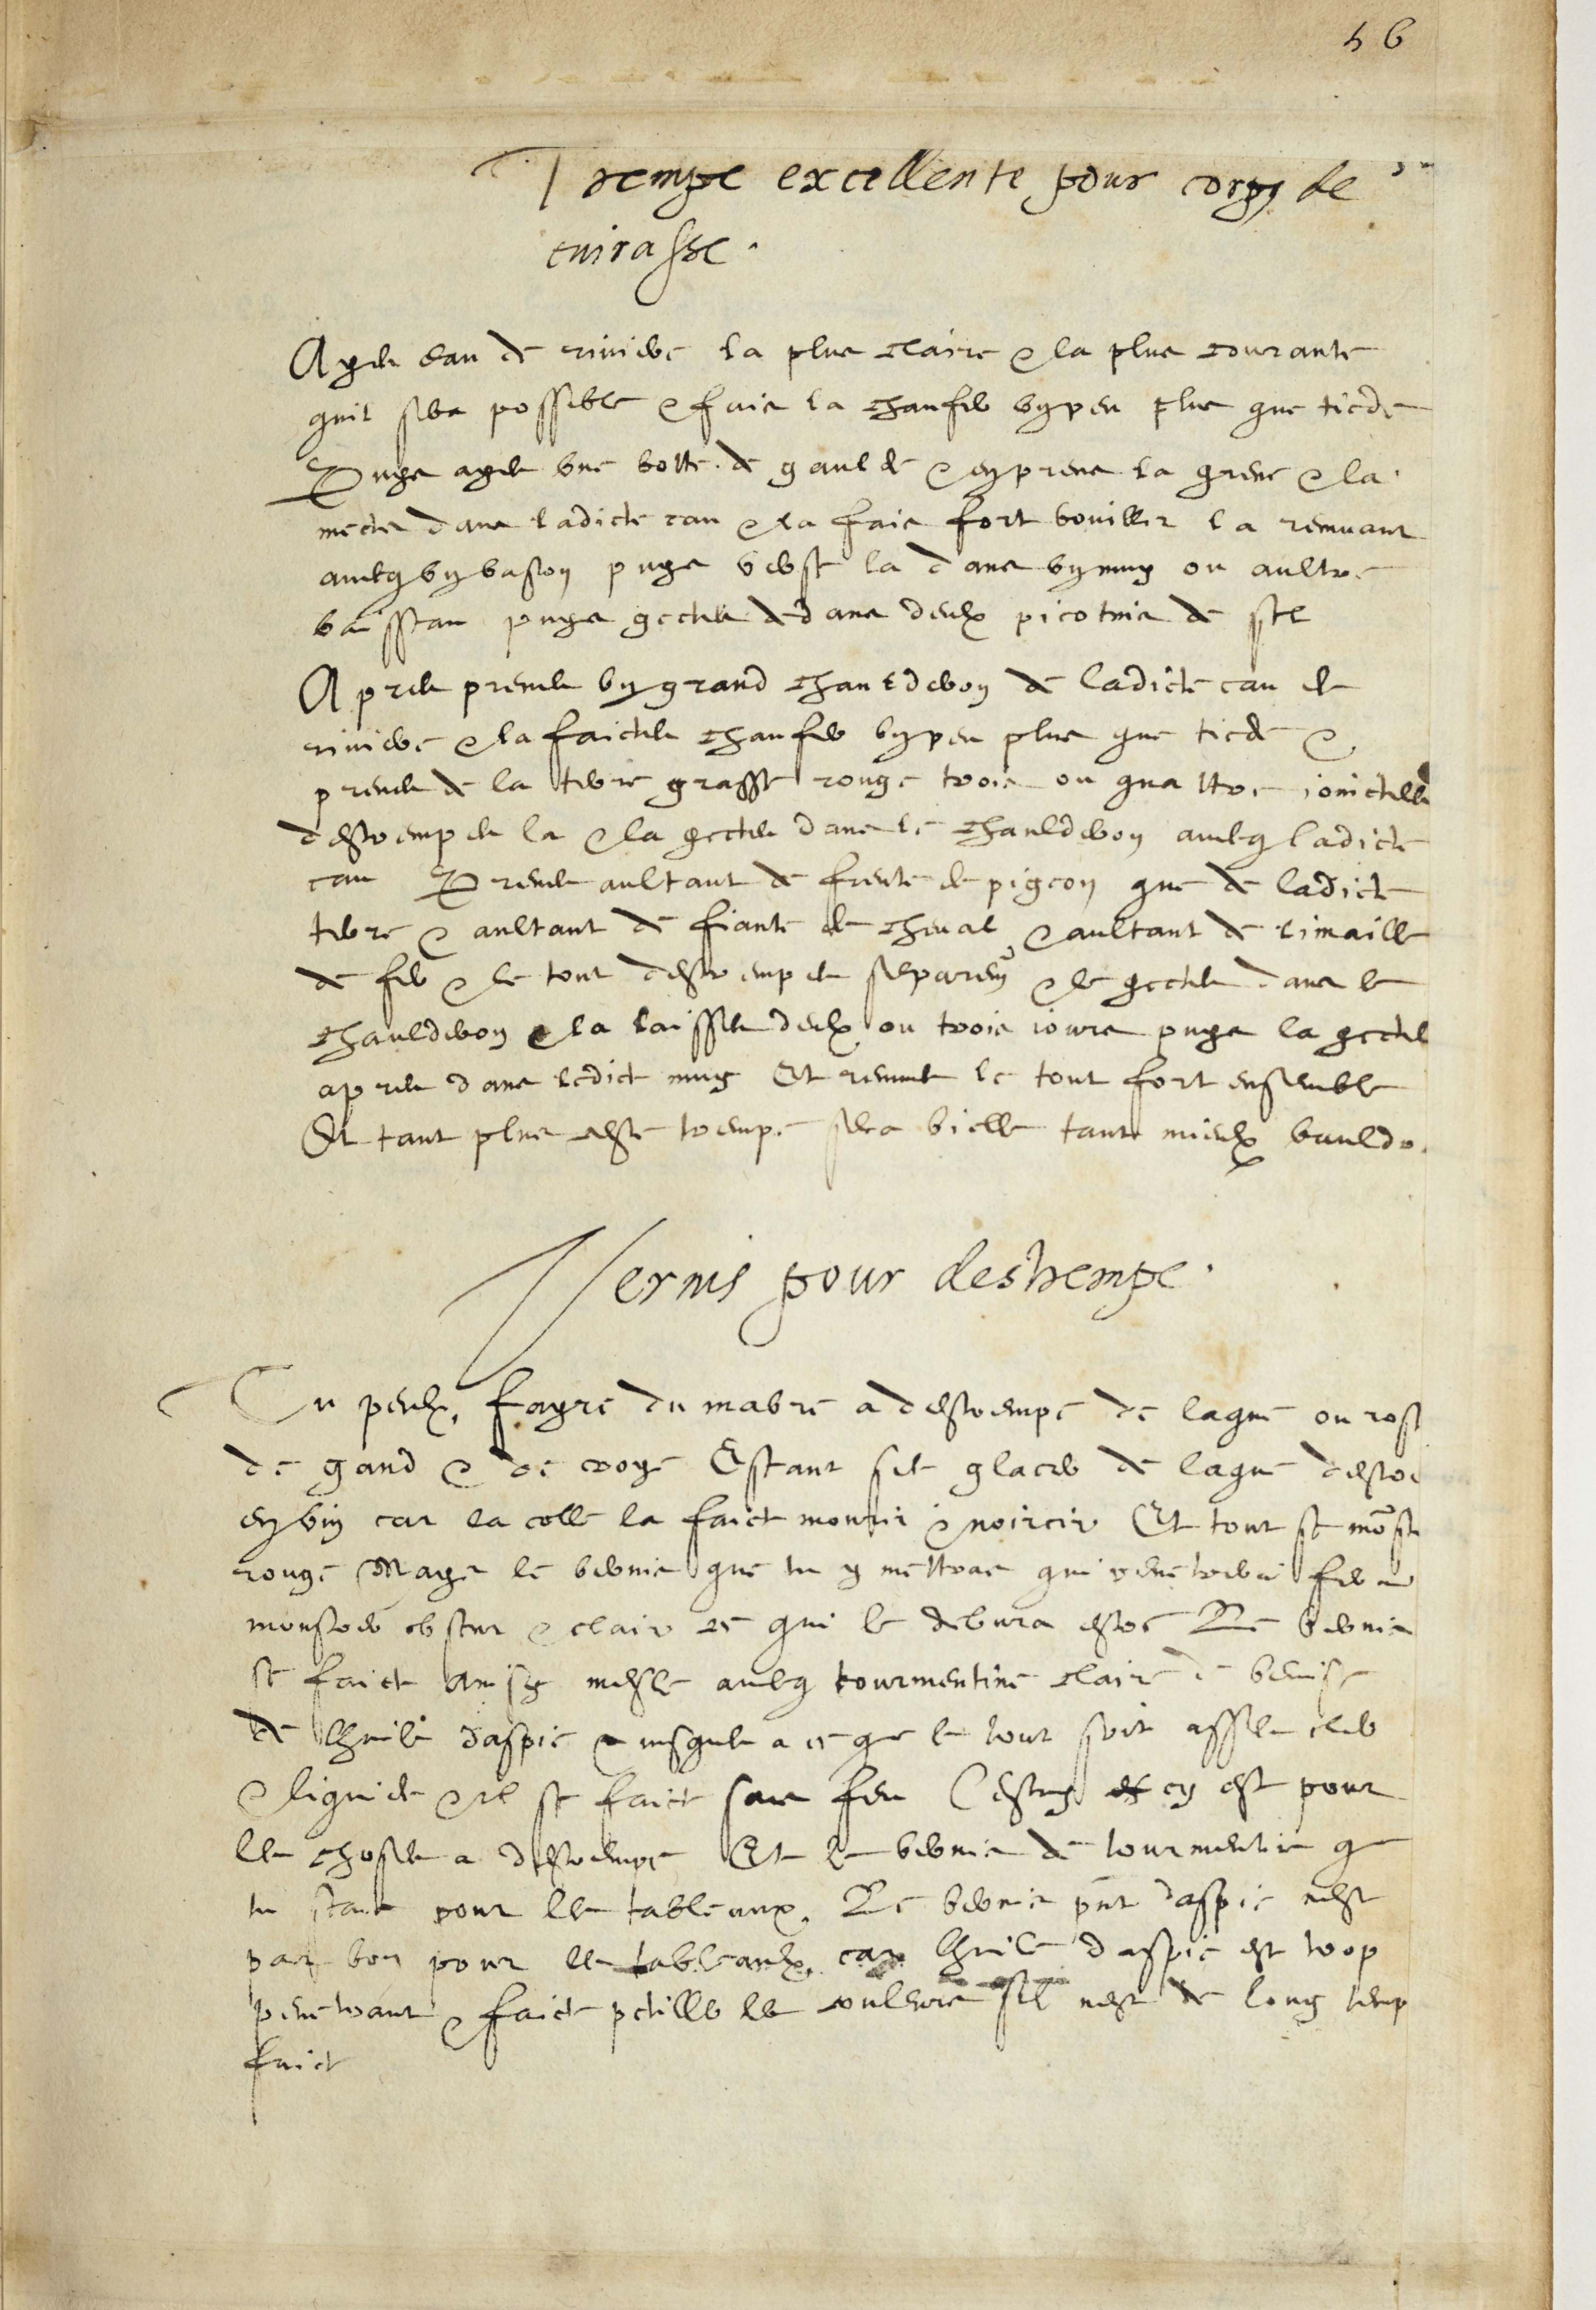 56
Trempe excellente pour corps de
cuirasse.
Ayes eau de riviere la plus claire & la plus courante
quil sera possible & fais la chaufer un peu plus que tiede
Puys ayes une botte de gaulde & en prens la grene & la
mects dans ladicte eau & la fais fort bouillir la remuant
avecq un baston puys verse la dans un muy ou aultre
vaisseau puys gectes dedans deulx picotins de sel
Apres prenes un grand chauldron de ladicte eau de
riviere & la faictes chaufer un peu plus que tiede &
prenes de la terre grasse rouge trois ou quattre
destrempes la & la gectes dans le chauldron avecq ladicte
eau Prenes aultant de fiente de pigeon que de ladicte
terre & aultant de fiante de cheval & aultant de limaille
de fer & le tout destrempes separem & le gectes dans le
chauldron & la laisses deulx ou trois jours puys la gectes
apres dans ledict muy Et remues le tout fort ensemble
Et tant plus ceste trempe sera vielle tant mieulx vauldr
Vernis pour destrempe.
Tu peulx fayre du mabre a destrempe de laque ou rose
de gand & de croye Estant sec glacer de laque destre
en vin car la colle la faict mourir & noircir Et tout se monst
rouge Mays le vernis que tu y mettras qui penetrera fera
monstrer obscur & clair ce qui le debvra estre Le vernis
se faict mesle avecq tourmentine claire de venise
de lhuile daspic jusques a ce que le tout soit asses cler
& liquide & il se faict sans feu Cestuy cy est pour
les choses a destrempe Et le vernis de tourmentine que
tu scais pour les tableaux. Le vernis pnt daspic nest
pas bon pour les tableaulx car lhuile daspic est trop
penetrant & faict petiller les couleurs sil nest de long temps
faict